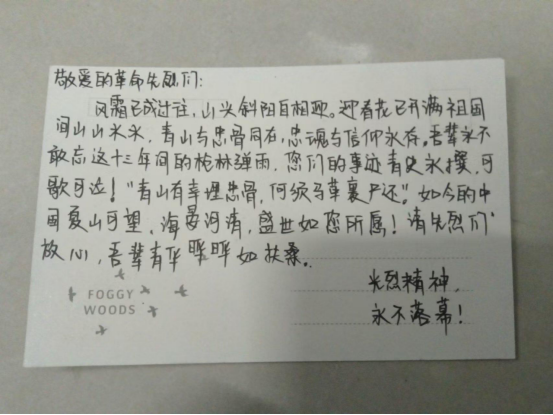 敬爱的革命先烈们:
风霜已成过往,山头斜阳自相欢。迎春花已开满祖国
间山山水水,青山与忠骨同在,忠魂与信仰永存。吾辈永不
敢忘这十三年间的枪林弹雨,您们的事迹青史永撰,可
歌可泣!"青山有幸埋忠骨,何须马革裹尸还"。如今的中
国夏山可望、海晏河清,盛世如您所愿!请先烈们
放心,吾辈青年 晔晔如扶桑。
光烈精神,
永不落幕!
FOGGY
WOODS